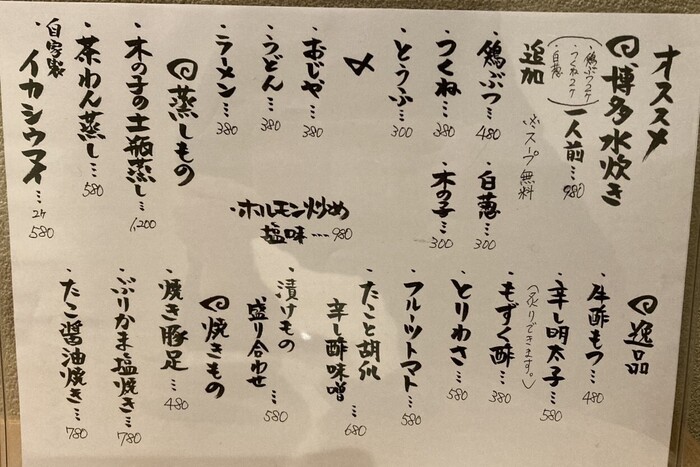 オススメ
博多水炊き
・鶏ぶつ2ケ
・つくね2ケ
・白葱
一人前…980
追加
※スープ無料
・鶏ぶつ…480
・つくね…380
・とうふ…300
・白葱…300
・木の子…300
〆
・おじや…380
・うどん…380
・ラーメン…380
・ホルモン炒め
塩味…980
蒸しもの
・木の子の土瓶蒸し…1,200
・茶わん蒸し…580
・自家製
イカシウマイ…2ケ580
逸品
・牛酢もつ…480
・辛し明太子…580
(炙りできます。)
・もずく酢…380
・とりわさ…580
・フルーツトマト…580
・たこと胡瓜
辛し酢味噌…680
・漬けもの
盛り合わせ…580
焼きもの
・焼き豚足…480
・ぶりかま塩焼き…780
・たこ醤油焼き…780